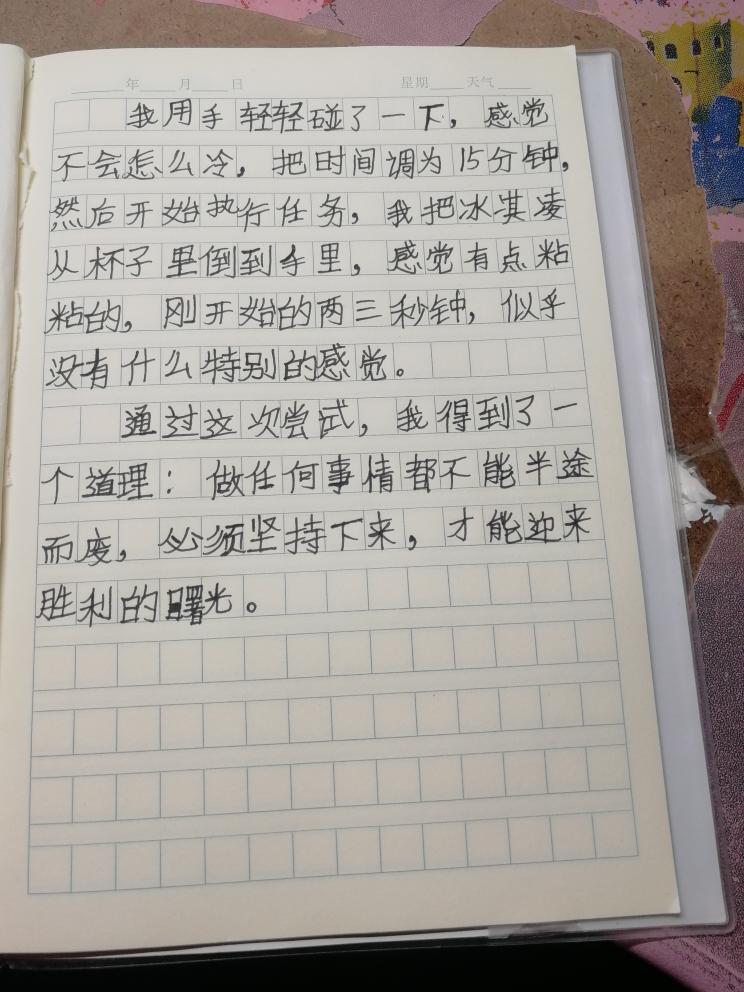 年 月 日 星期 天气
我用手轻轻碰了一下，感觉
不会怎么冷，把时间调为15分钟，
然后开始执行任务，我把冰淇凌
从杯子里倒到手里，感觉有点粘
粘的，刚开始的两三秒钟，似乎
没有什么特别的感觉。
通过这次尝试，我得到了一
个道理：做任何事情都不能半途
而废，必须坚持下来，才能迎来
胜利的曙光。